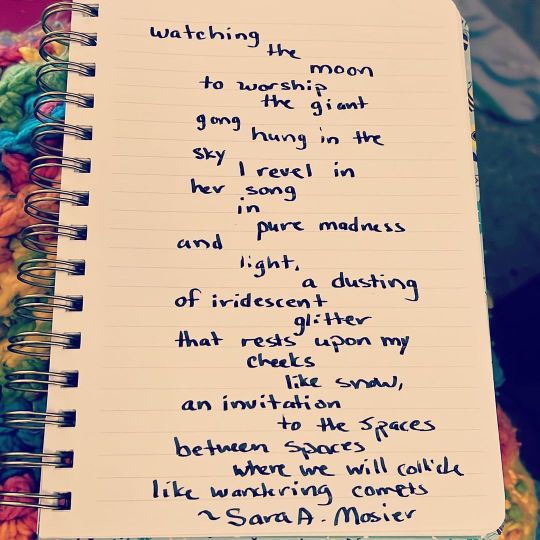 watching
the
moon
to worship
the giant
gong
hung in the
sky
I revel in
her song
in
pure madness
and
light,
a dusting
of iridescent
glitter
that rests upon my
cheeks
like snow,
an invitation
to the spaces
between spaces
where we will collide
like wandering comets
~ Sara A. Mosier